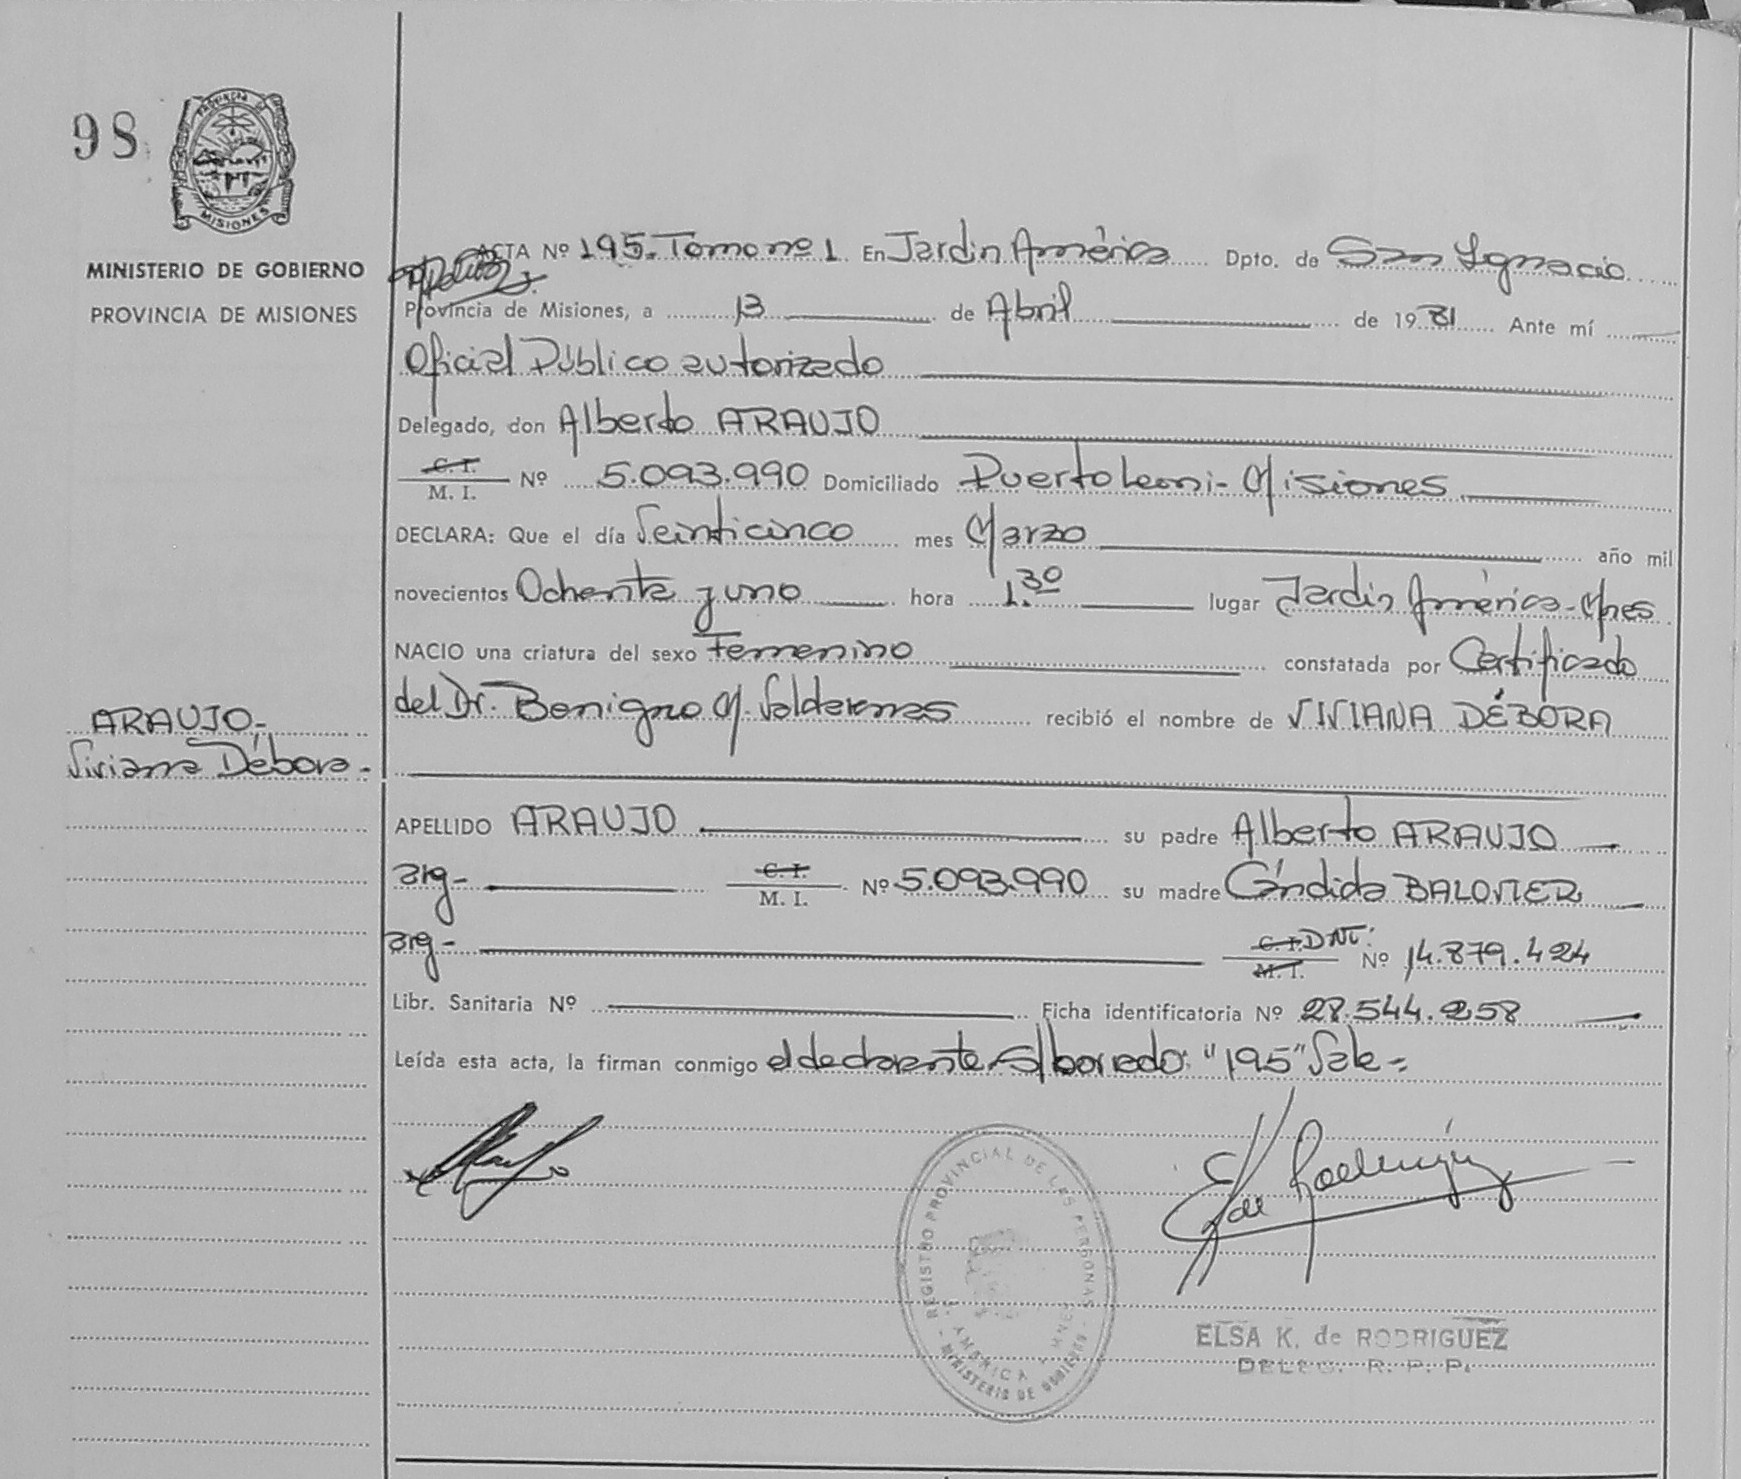 98
PROVINCIA DE
MISIONES
MINISTERIO DE GOBIERNO
PROVINCIA DE MISIONES
ARAUJO-
Viviana Débora-
ACTA Nº 195. Tomo nº 1. En Jardin América Dpto. de San Ignacio
Provincia de Misiones, a 13 de Abril de 1981 Ante mí
Oficial Público autorizado
Delegado, don Alberto ARAUJO
C. I.
M. I. Nº 5.093.990 Domiciliado Puerto Leoni-Misiones
DECLARA: Que el día Veinticinco mes Marzo año mil
novecientos Ochenta y uno hora 1.30 lugar Jardin América-Mnes
NACIO una criatura del sexo Femenino constatada por Certificado
del Dr. Benigno M. recibió el nombre de VIVIANA DÉBORA
APELLIDO ARAUJO su padre Alberto ARAUJO
arg- C. I.
M. I. Nº 5.093.990 su madre Cándida
arg- C. I. DNI:
M. I. Nº 14.879.424
Libr. Sanitaria Nº Ficha identificatoria Nº 28.544.258
Leída esta acta, la firman conmigo el declarante S/borrado: "195" Vale-
REGISTRO PROVINCIAL DE LAS PERSONAS
AMERICA
MINISTERIO DE GOBIERNO
E. de Rodriguez
ELSA K. de RODRIGUEZ
DELEG. R. P. P.